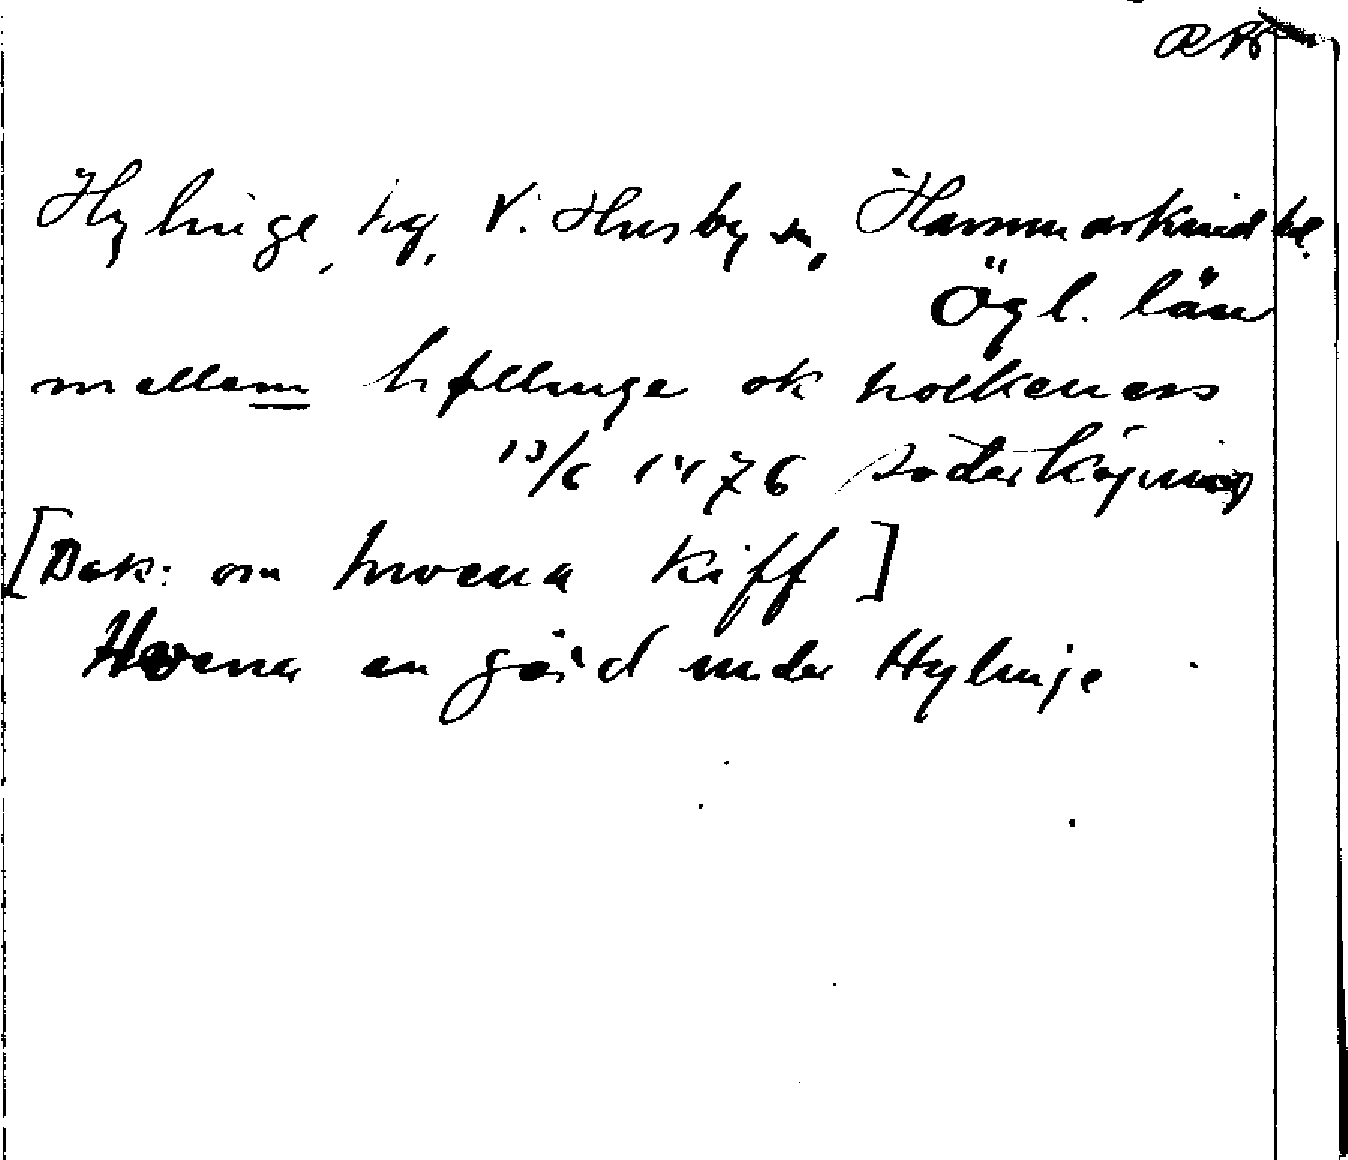 RAp
Hylinge, hg, V. Husby sn, Hammarkind hd.
Ögl. län
mellem høllinge ok holkenæs
13/6 1476 Söderköping
[Dok: om hwena kiff]
Hwena en gård under Hylinge